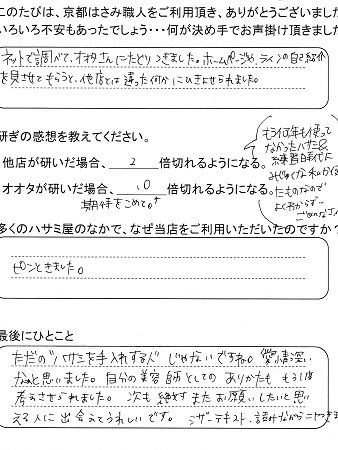 このたびは、京都はさみ職人をご利用頂き、ありがとうございました
いろいろ不安もあったでしょう・・・何が決め手でお声掛け頂きまし
ネットで調べて、オオタさんにたどりつきました。ホームページや、ラインの自己紹介
を見させてもらうと、他店とは違った何かにひきよせられました。
研ぎの感想を教えてください。
他店が研いだ場合、2倍切れるようになる。
オオタが研いだ場合、10倍切れるようになる。
期待をこめて。↑
もう何年も使って
なかったハサミを
練習自体に
たものなので
よくわからず…
ごめんなさい
多くのハサミ屋のなかで、なぜ当店をご利用いただいたのですか?
ピンときました。
最後にひとこと
ただの"ハサミを手入れする人"じゃないですね。愛情深い
なぁと思いました。自分の美容師としてのありかたも もう1度
考えさせられました。次も絶対またお願いしたいと思
える人に出会えてうれしいです。シザーテキスト、読みながらニヤつきま